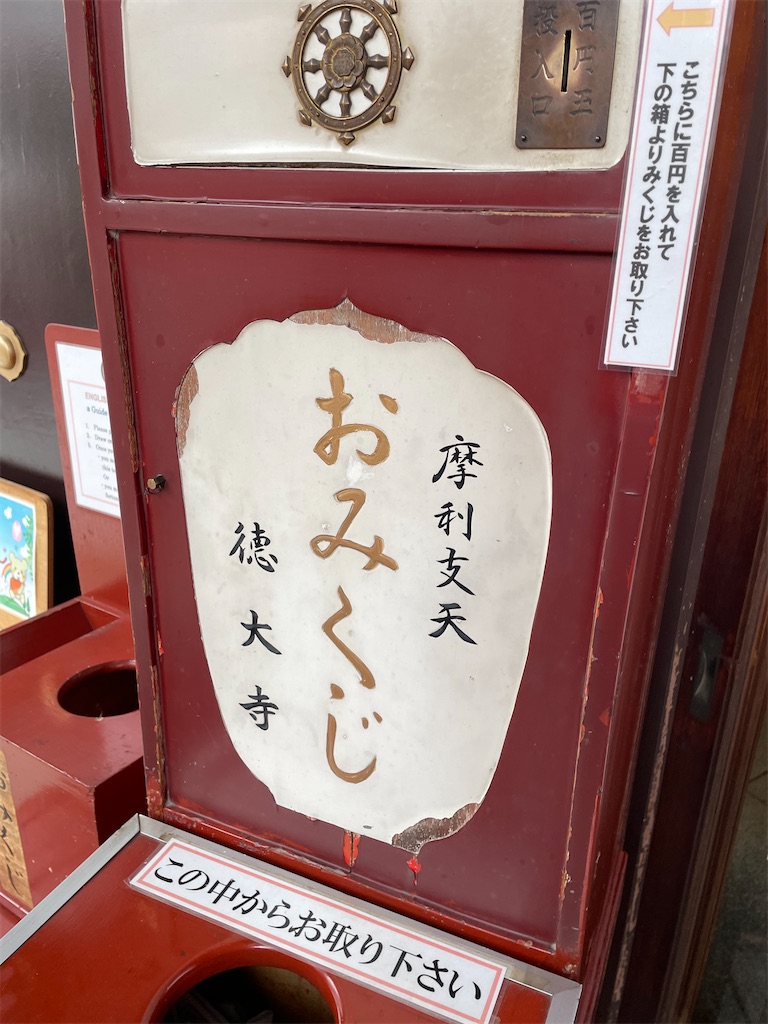 百円玉
投入口
こちらに百円を入れて
下の箱よりみくじをお取り下さい
摩利支天
おみくじ
徳大寺
この中からお取り下さい
ENGLISH
a Guide
おみくじ